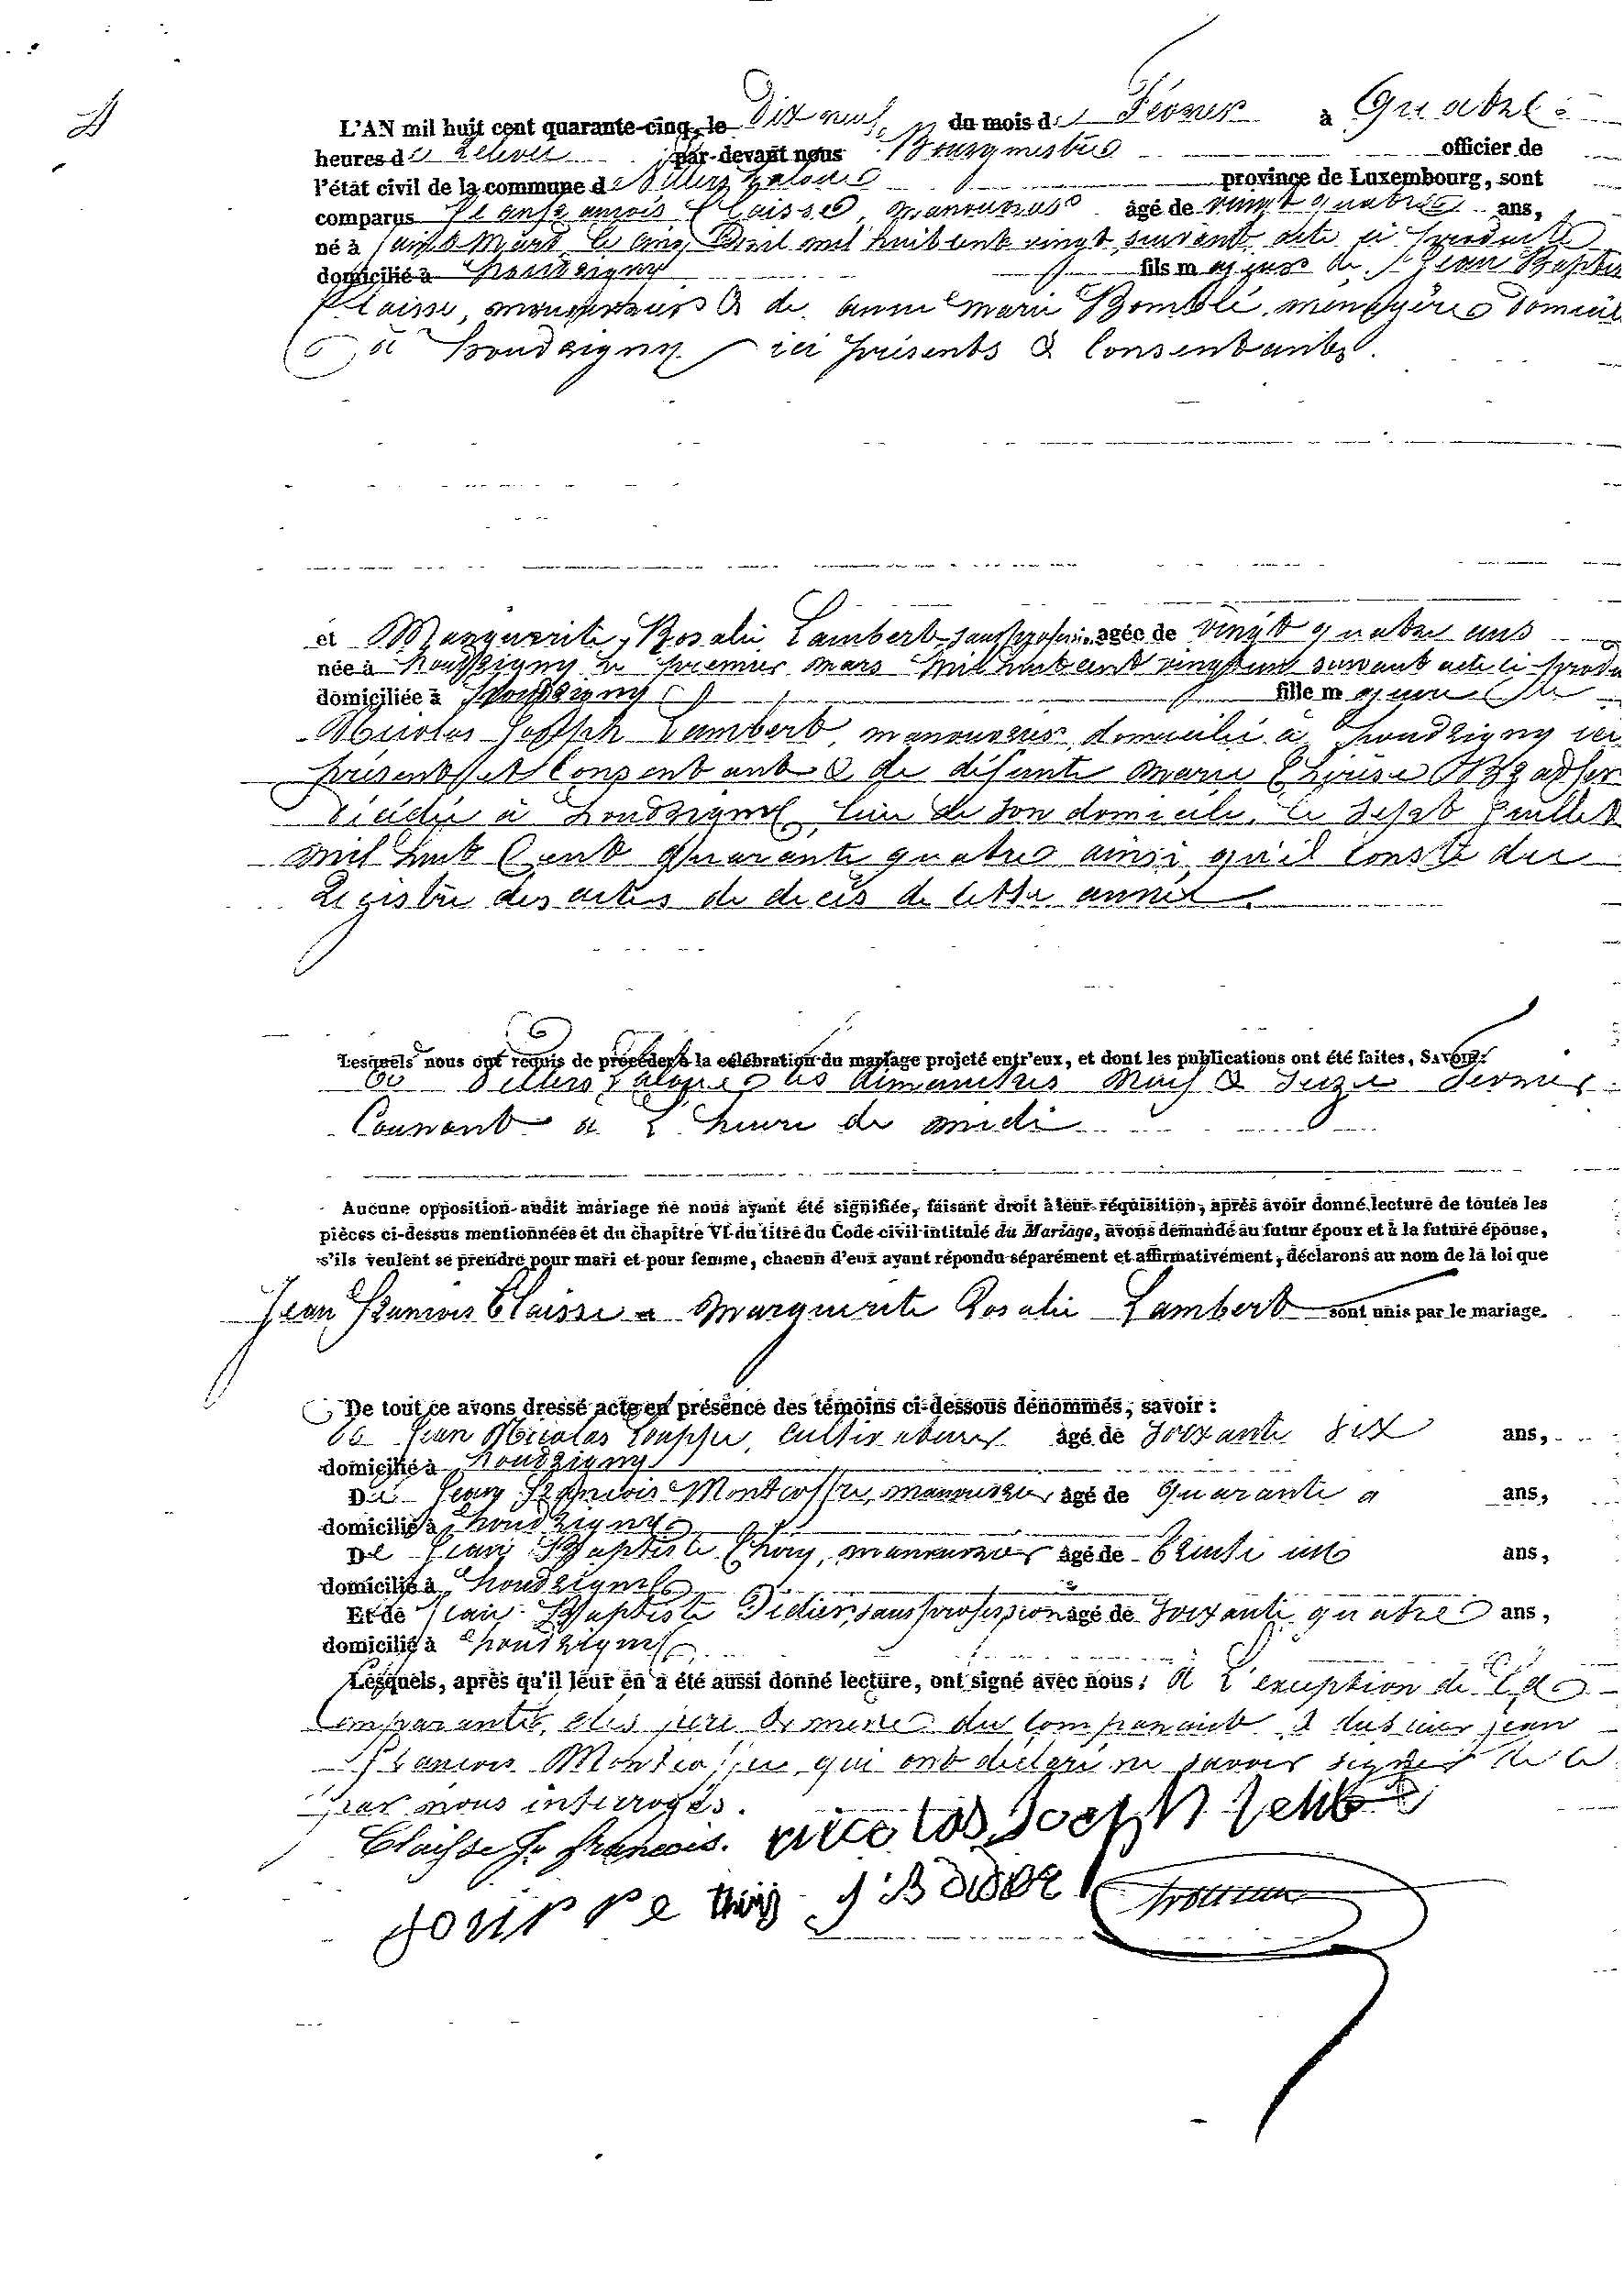 L'AN mil huit cent quarante-cinq, le Dix neuf du mois de Fevrier à Quatre
heures de Relevée par-devant nous Bourgmestre officier de
l'état civil de la commune de Villers Laloue province de Luxembourg, sont
comparus Jean francois Claisse, manouvrier âgé de vingt quatre ans,
né à Saint Mard le cinq avril mil huit cent vingt suivant acte ci produit
domicilié à houdrigny fils majeur de Jean Baptis
Claisse, manouvrier & de anne Marie Bomblé, ménagère domicil
à houdrigny ici présents & Consentants.
et Marguerite Rosalie Lambert, sans profession, agée de vingt quatre ans
née à houdrigny le premier mars mil huit cent vingt un suivant acte ci produ
domiciliée à houdrigny fille majeure de
Nicolas Joseph Lambert, manouvrier domicilié à houdrigny ici
présent et Consentant & de défunte Marie
décédée à houdrigny, lieu de son domicile, le sept Juillet
mil huit Cent quarante quatre ainsi qu'il conste du
Registre des actes de décès de cette année.
Lesquels nous ont requis de procéder à la célébration du mariage projeté entr'eux, et dont les publications ont été faites, SAVOIR:
à Villers Laloue les dimanches Neuf & Seize Fevrier
Courant à l'heure de midi
Aucune opposition audit mariage ne nous ayant été signifiée, faisant droit à leur réquisition, après avoir donné lecture de toutes les
pièces ci-dessus mentionnées et du chapitre VI du titre du Code civil intitulé du Mariage, avons demandé au futur époux et à la future épouse,
s'ils veulent se prendre pour mari et pour femme, chacun d'eux ayant répondu séparément et affirmativement, déclarons au nom de la loi que
Jean Francois Claisse & Marguerite Rosalie Lambert sont unis par le mariage.
De tout ce avons dressé acte en présence des témoins ci-dessous dénommés, savoir :
De Jean Nicolas Gouppe, Cultivateur âgé de Soixante dix ans,
domicilié à houdrigny
De Jean Francois, manouvrier âgé de Quarante ans,
domicilié à houdrigny
De Jean Baptiste Thiry, manouvrier âgé de Trente un ans,
domicilié à houdrigny
Et de Jean Baptiste Didier, sans profession âgé de Soixante quatre ans,
domicilié à houdrigny
Lesquels, après qu'il leur en a été aussi donné lecture, ont signé avec nous, à l'exception de la
Comparante, des père & mère du Comparant & du témoin jean
Francois qui ont déclaré ne savoir signer de ce
par nous interrogés.
Claisse J. francois. nicolas Joseph
gouppe thiry J B Didier